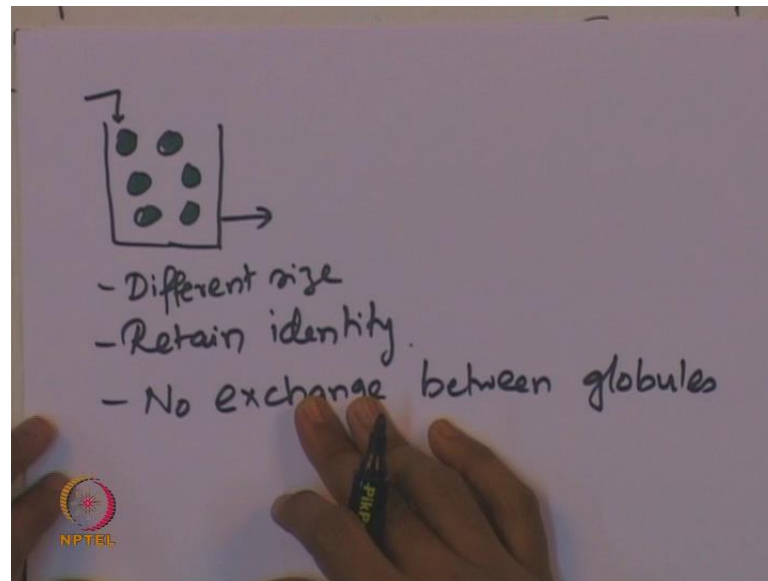 - Different size
- Retain identity.
- No exchange between globules
PikP
NPTEL